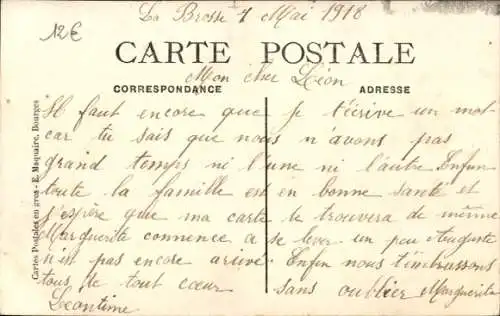 La Brosse 7 Mai 1918
12€
CARTE POSTALE
Mon cher Léon
CORRESPONDANCE
ADRESSE
Il faut encore que je t'écrive un mot
car tu sais que nous n'avons pas
grand temps ni l'une ni l'autre Enfin
toute la famille est en bonne santé et
j'espère que ma carte te trouvera de même
Marguerite commence a se lever un peu Auguste
n'est pas encore arrivé. Enfin nous t'embrassons
tous de tout cœur sans oublier Marguerite
Léontine
Cartes Postales en gros - E. Maquaire, Bourges